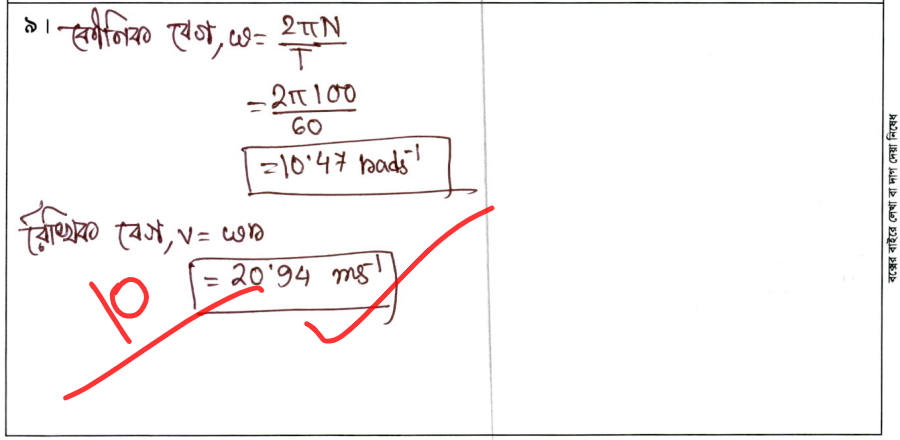 ৯। কৌনিক বেগ, ω = 2πN/T
= 2π100/60
= 10.47 rads⁻¹
রৈখিক বেগ, v = ωr
= 20.94 ms⁻¹
10
বক্সের বাইরে লেখা বা দাগ দেয়া নিষেধ